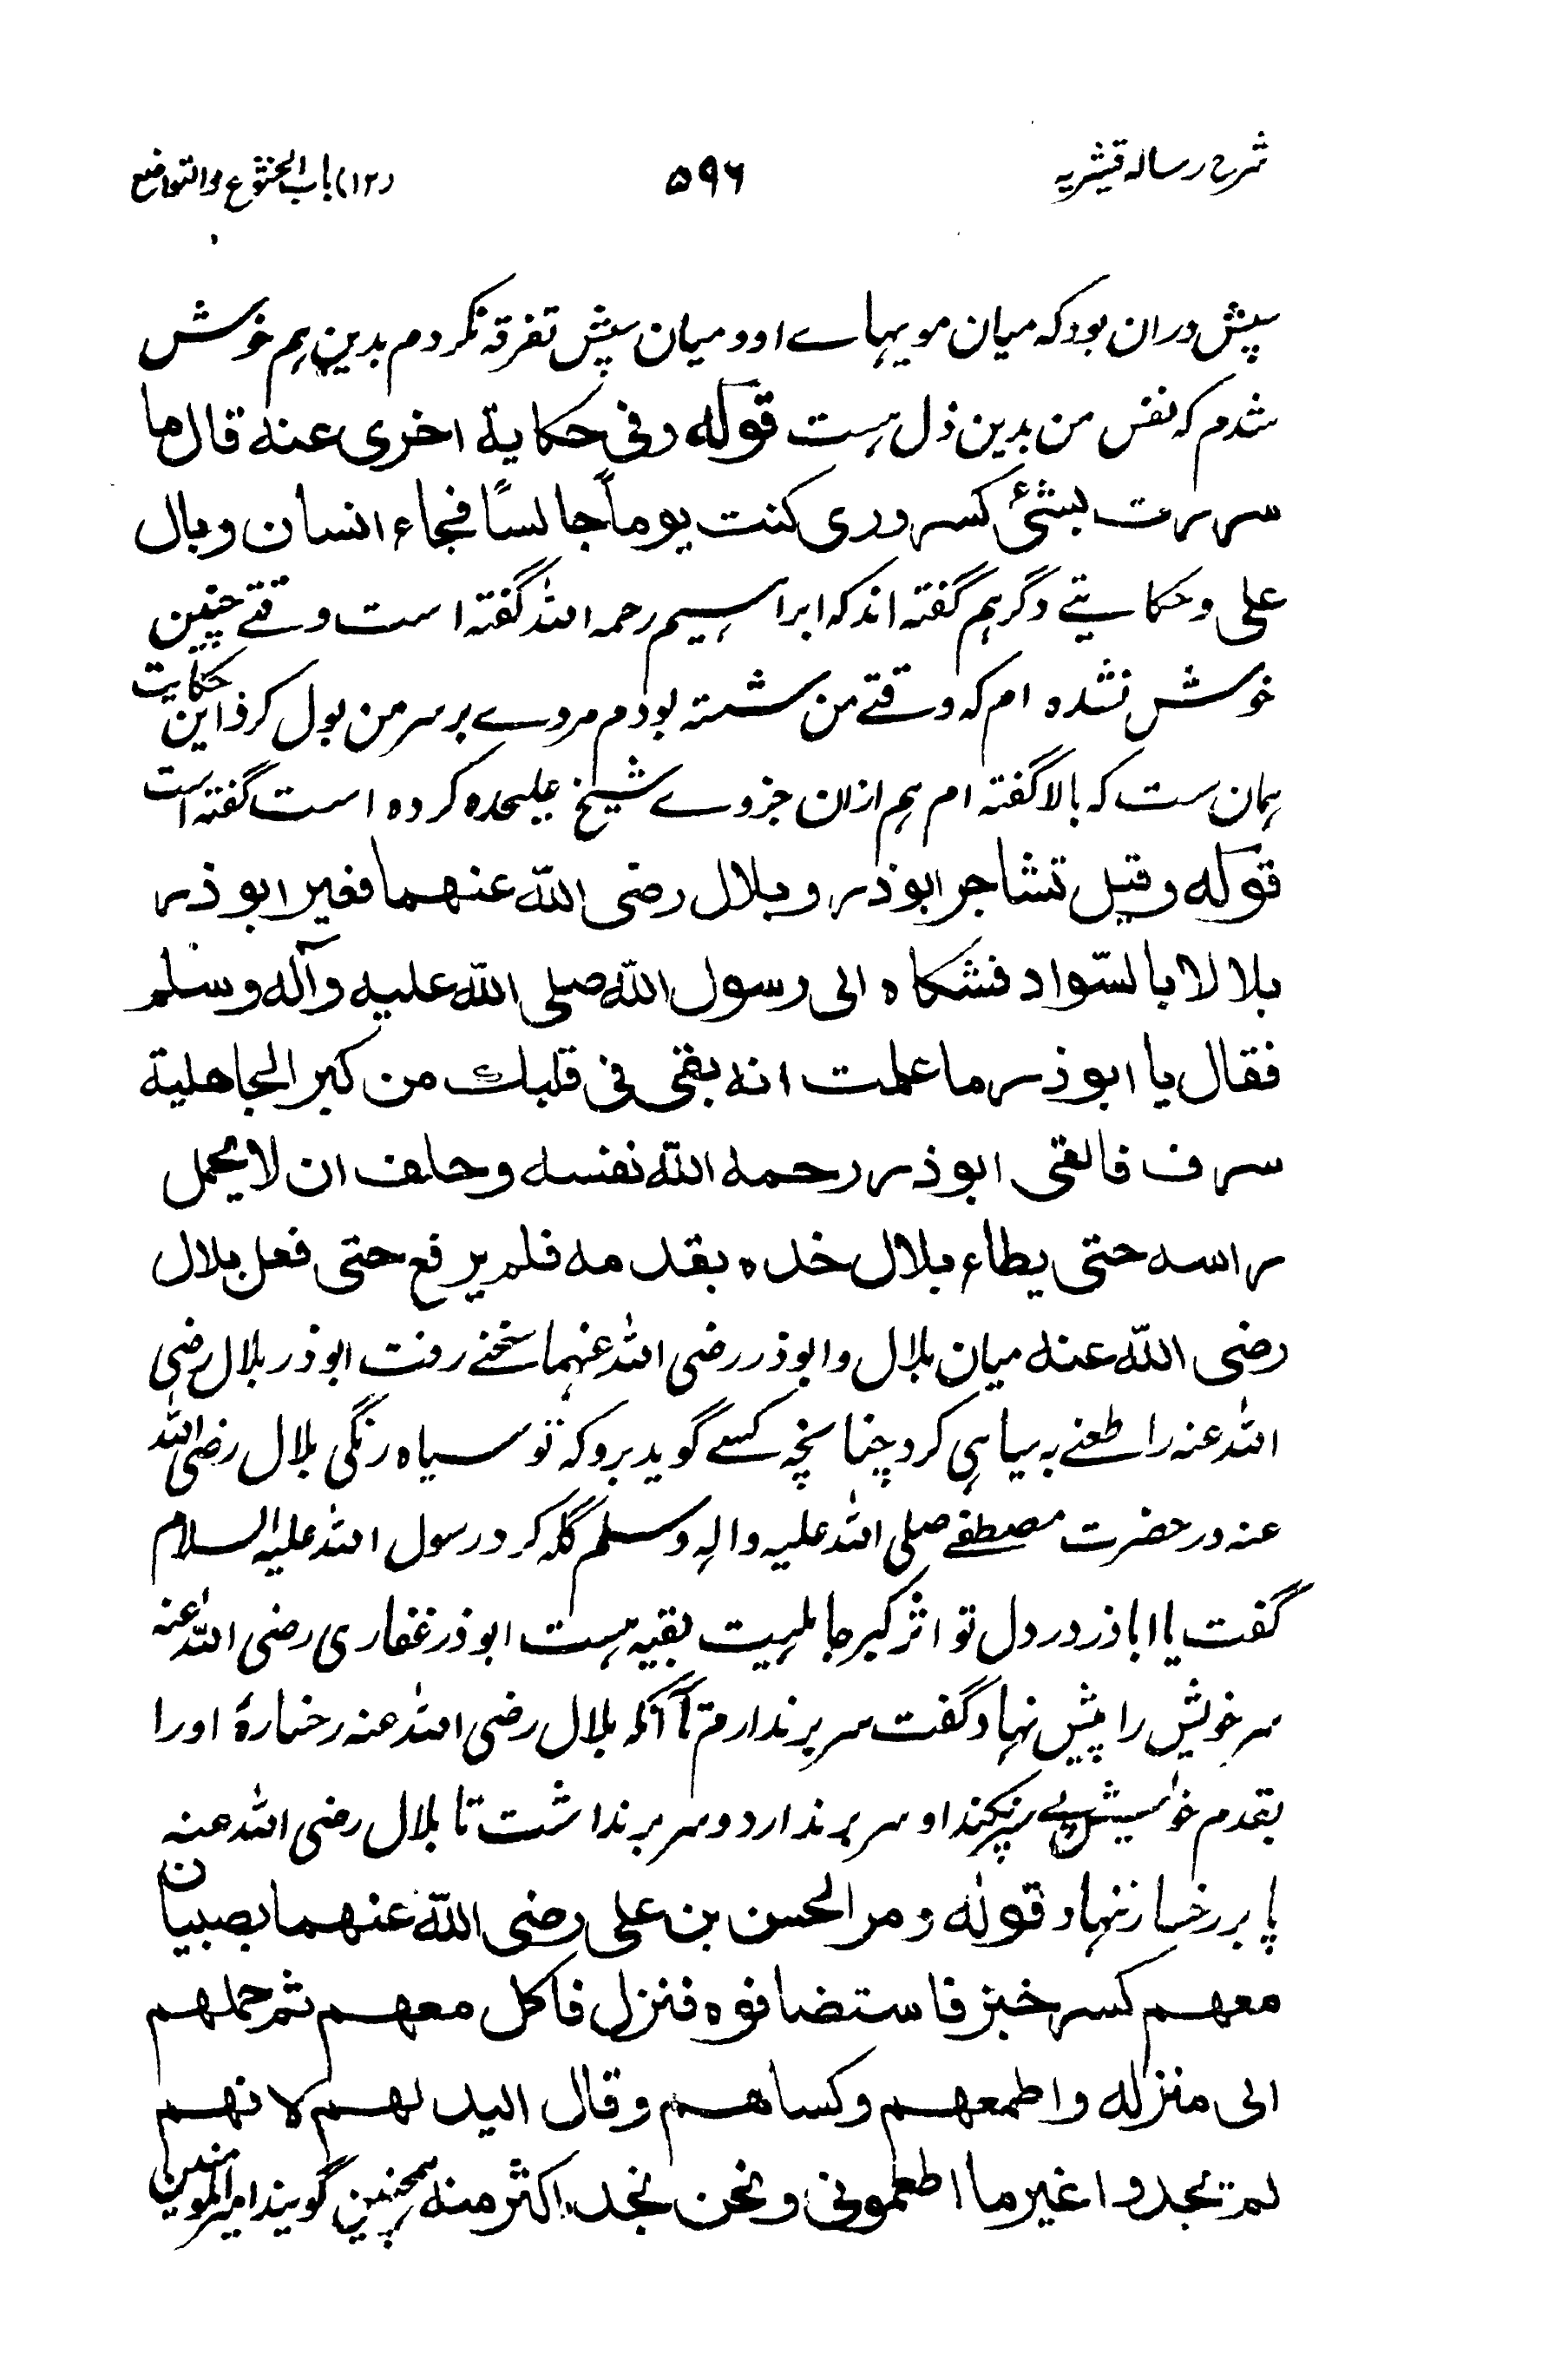 شرح رساله قشیریه
۵۹۶
(۱۲) باب الخشوع والتواضع
سپش دران بود که میان مویهاے او و میان سپش تفرقه نکردم بدین هم خوش
شدم که نفس من بدین ذل هست قوله وفی حکایة اخری عنه قال ما
سررت بشئ کسروری کنت یوماً جالسًا فجاء انسان وبال
علی وحکایتے دگر هم گفته اند که ابراهیم رحمه الله گفته است وقتے چنین
خوش نشده ام که وقتے من نشسته بودم مردے بر سر من بول کرد این حکایت
همان ست که بالا گفته ام هم ازان جزوے شیخ علیحده کرده است گفته است
قوله وقیل تشاجر ابوذر وبلال رضی الله عنهما فعیر ابوذر
بلالا بالسّواد فشکاه الی رسول الله صلی الله علیه وآله وسلم
فقال یا ابوذر ما علمت انه بقی فی قلبك من کبر الجاهلیة
سرف فالقی ابوذر رحمه الله نفسه وحلف ان لا یحمل
راسه حتی یطاء بلال خده بقدمه فلم یرفع حتی فعل بلال
رضی الله عنه میان بلال و ابوذر رضی الله عنهما سخنے رفت ابوذر بلال رضی
الله عنه را طعنے به سیاهی کرد چنانچه کسے گوید برو که تو سیاه رنگی بلال رضی الله
عنه در حضرت مصطفے صلی الله علیه واله وسلم گله کرد رسول الله علیه السلام
گفت یا اباذر در دل تو اثر کبر جاهلیت بقیه هست ابوذر غفاری رضی الله عنه
سر خویش را پیش نهاد گفت سر برندارم تا آنکه بلال رضی الله عنه رخسارهٔ او را
بقدم خویش پے سپر نکند او سر برندارد و سر برنداشت تا بلال رضی الله عنه
پا بر رخسار ننهاد قوله ومر الحسن بن علی رضی الله عنهما بصبیان
معهم کسر خبز فاستضافوه فنزل فاکل معهم ثم حملهم
الی منزله واطمعهم وکساهم وقال الید لهم لانهم
لم تجدوا غیر ما اطعمونی ونحن نجد اکثر منه همچنین گویند امیر المومنین